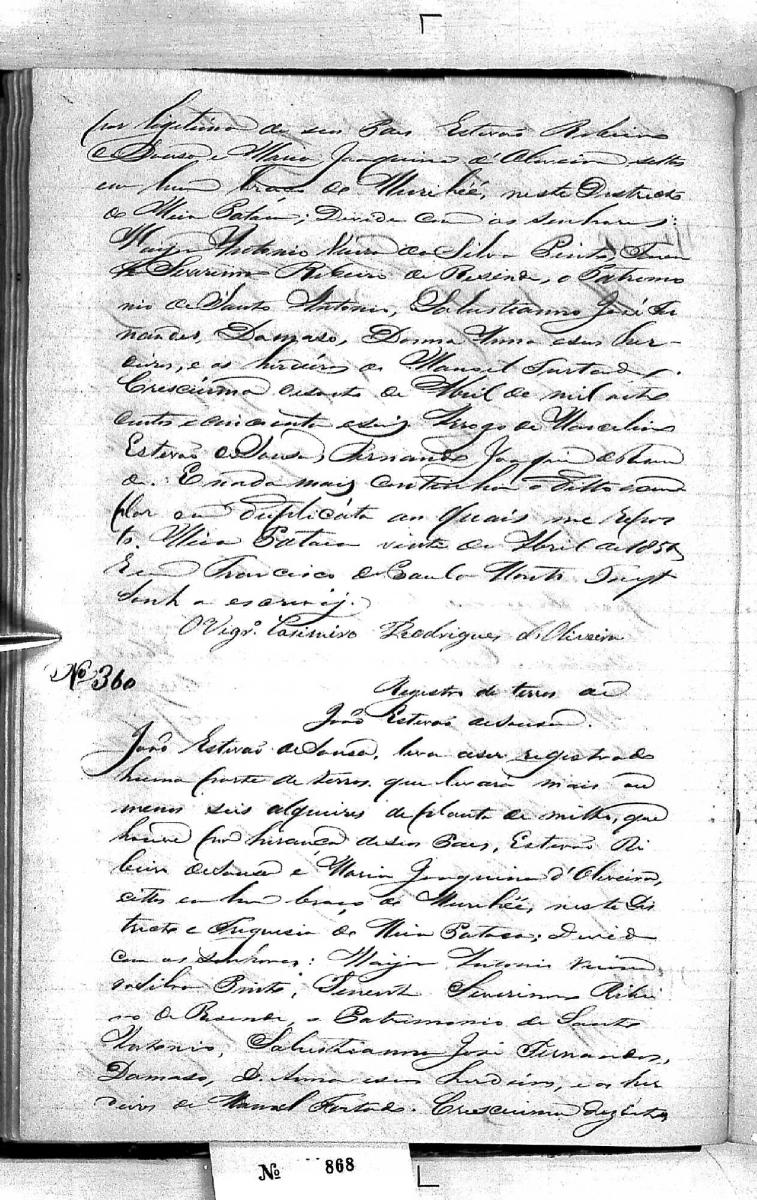 por legitima de seus Pais Estevão Ribeiro
de Sousa e Maria Joaquina d'Oliveira sittos
em hum braço do Muriahé, neste Districto
do Meia Pataca; Devide com os senhores:
Major Antonio Vieira da Silva Pinto, Tenen
te Severino Ribeiro de Resende, o Patremo
nio de Santo Antonio, Salustianno José Fer
nandes, Damaso, Donna Anna eseus her-
deiros, e os herdeiros de Manoel Furtado.
Cresciúma desoito de Abril de mil oito
centos ecincoenta eseis. Arogo de Marcelino
Estevão de Sousa, Fernando Joaquim
E nada mais continha o ditto exem
plar em duplicata ao quais me repor
to. Meia Pataca vinte de Abril de 1856
Eeu Francisco de Paula
o escrevi.
O Vigrº. Casimiro Rodrigues d'Oliveira
Nº 360
Registro de terras de
João Estevão de Sousa.
João Estevão de Sousa, leva aser registrado
huma parte de terras que levará mais ou
menos seis alqueires de planta de milho, que
houve por herança de seos Pais, Estevão Ri
beiro de Sousa e Maria Joaquina d'Oliveira,
cittos em hum braço do Muriahé, neste Dis
tricto e Freguesia do Meia Pataca; Devide
com os Senhores: Major Antonio Vieira
da Silva Pinto, Tenente Severino Ribei
ro de Resende, o Patrimonio de Santo
Antonio, Salustianno José Fernandes,
Damaso, D. Anna eseus herdeiros, e os her
deiros de Manoel Fortado. Cresciuma dezoito
Nº 868